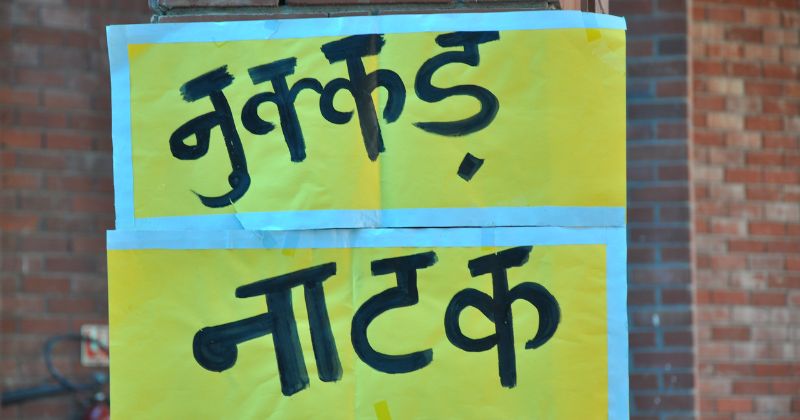 नुक्कड़
नाटक